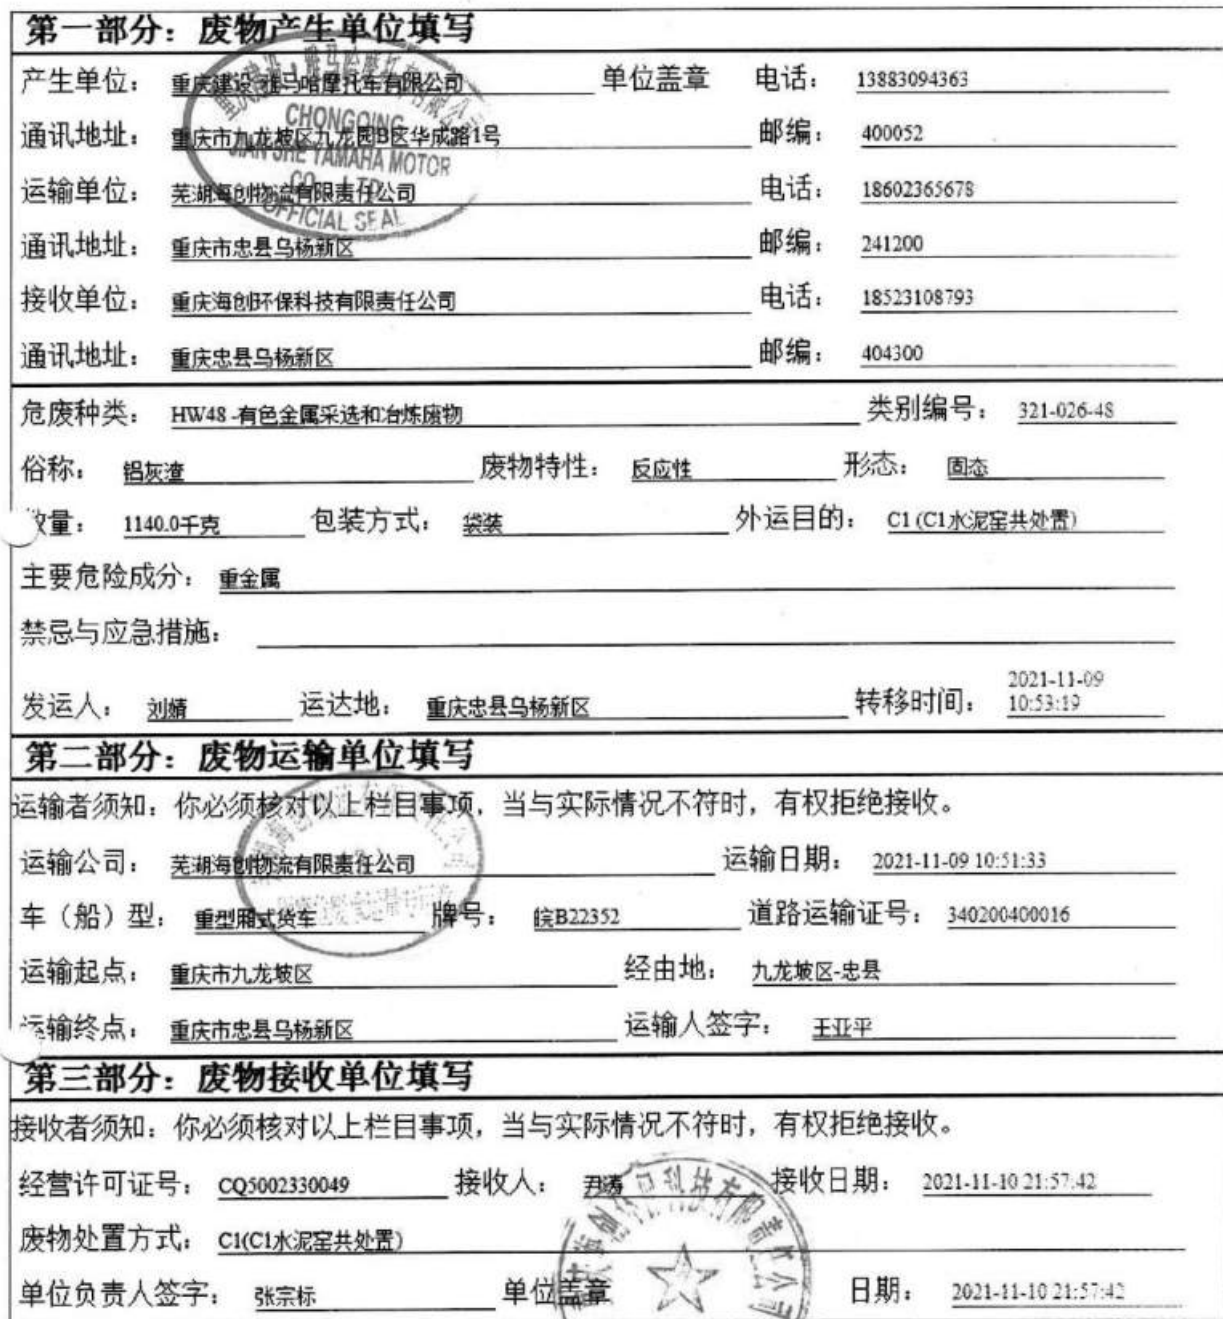 第一部分：废物产生单位填写
产生单位： 重庆建设·雅马哈摩托车有限公司 单位盖章 电话： 13883094363
通讯地址： 重庆市九龙坡区九龙园B区华成路1号 邮编： 400052
CHONGQING
JIAN SHE YAMAHA MOTOR
CO., LTD.
OFFICIAL SEAL
运输单位： 芜湖海创物流有限责任公司 电话： 18602365678
通讯地址： 重庆市忠县乌杨新区 邮编： 241200
接收单位： 重庆海创环保科技有限责任公司 电话： 18523108793
通讯地址： 重庆忠县乌杨新区 邮编： 404300
危废种类： HW48 -有色金属采选和冶炼废物 类别编号： 321-026-48
俗称： 铝灰渣 废物特性： 反应性 形态： 固态
数量： 1140.0千克 包装方式： 袋装 外运目的： C1 (C1水泥窑共处置)
主要危险成分： 重金属
禁忌与应急措施：
发运人： 刘婧 运达地： 重庆忠县乌杨新区 转移时间： 2021-11-09 10:53:19
第二部分：废物运输单位填写
运输者须知：你必须核对以上栏目事项，当与实际情况不符时，有权拒绝接收。
运输公司： 芜湖海创物流有限责任公司 运输日期： 2021-11-09 10:51:33
车（船）型： 重型厢式货车 牌号： 皖B22352 道路运输证号： 340200400016
运输起点： 重庆市九龙坡区 经由地： 九龙坡区-忠县
运输终点： 重庆市忠县乌杨新区 运输人签字： 王亚平
第三部分：废物接收单位填写
接收者须知：你必须核对以上栏目事项，当与实际情况不符时，有权拒绝接收。
经营许可证号： CQ5002330049 接收人： 尹涛 接收日期： 2021-11-10 21:57:42
废物处置方式： C1(C1水泥窑共处置)
单位负责人签字： 张宗标 单位盖章 日期： 2021-11-10 21:57:42